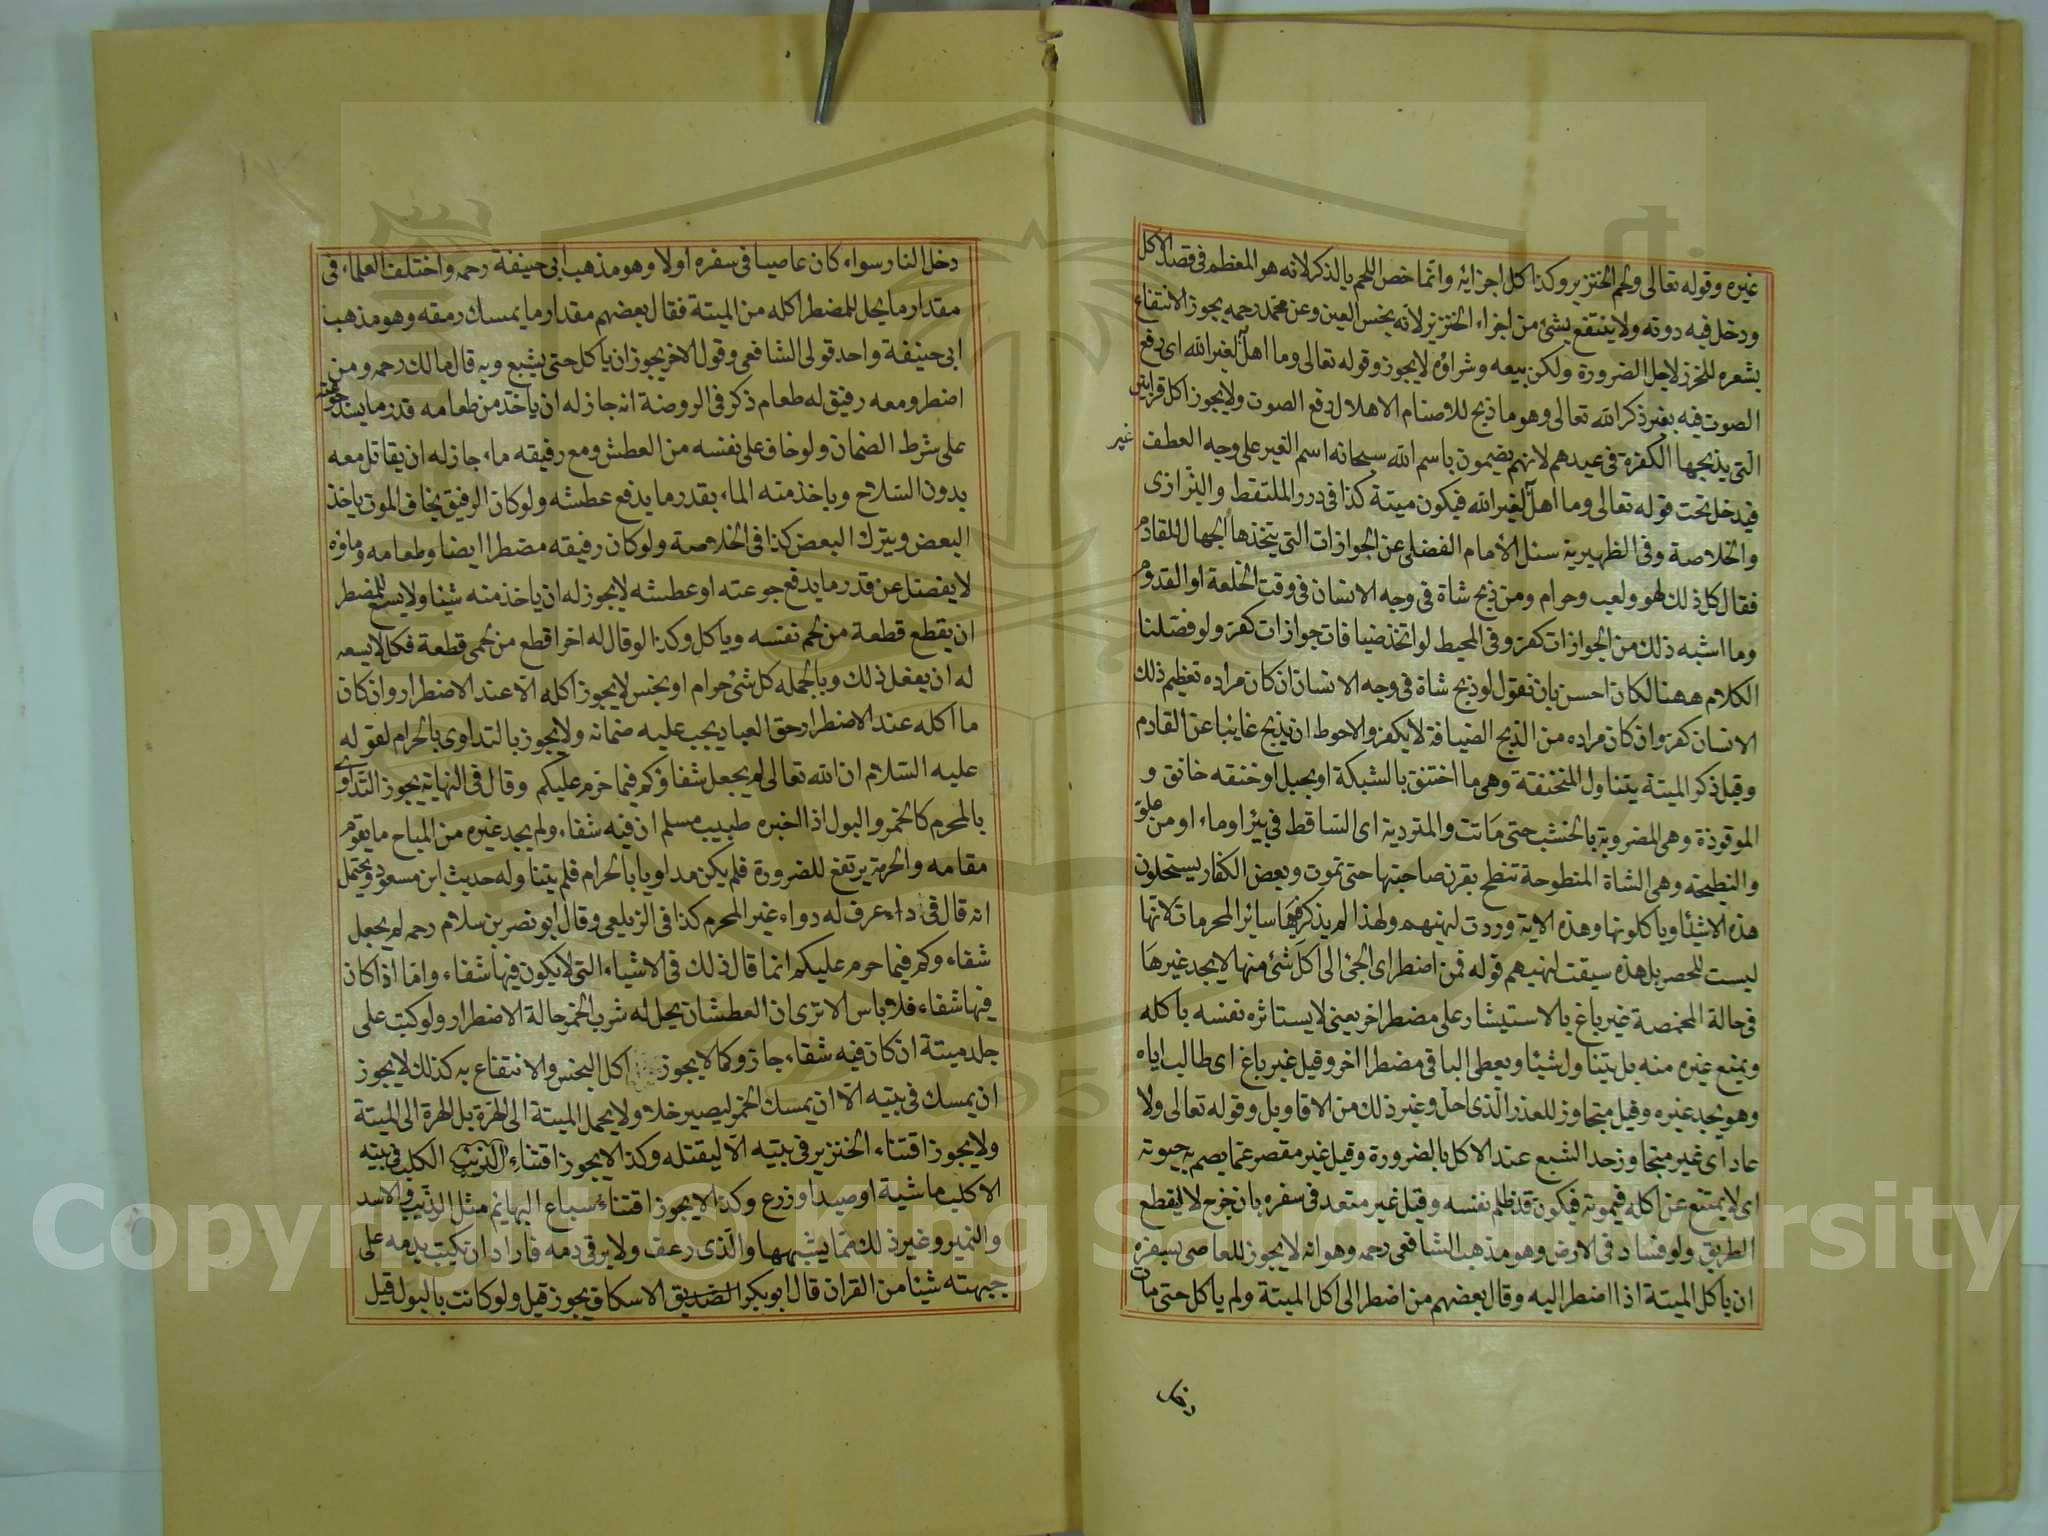 غيره وقوله تعالى ولحم الخنزير وكذا كل اجزائه وانما خص اللحم بالذكر لانه هو المعظم في قصد الاكل
ودخل فيه دونه ولا ينتفع بشئ من اجزاء الخنزير لانه نجس العين وعن محمد رحمه يجوز الانتفاع
بشعره للخرز لاجل الضرورة ولكن بيعه وشراؤه لا يجوز وقوله تعالى وما اهل لغير الله اى رفع
الصوت فيه بغير ذكر الله تعالى وهو ما ذبح للاصنام الاهلال رفع الصوت ولا يجوز اكل قرابين
التي يذبحها الكفرة في عيدهم لانهم يضمون باسم الله سبحانه اسم الغير على وجه العطف
غير
فيدخل تحت قوله تعالى وما اهل لغير الله فيكون ميتة كذا في درر الملتقط والبزازى
والخلاصة وفي الظهيرية سئل الامام الفضلى عن الجوازات التي يتخذها الجهال للقادم
فقال كل ذلك لهو ولعب وحرام ومن ذبح شاة في وجه الانسان في وقت الخلعة او القدوم
وما اشبه ذلك من الجوازات كفر وفي المحيط لو اتخذ ضيافات جوازات كفر ولو فصلنا
الكلام ههنا لكان احسن بان نقول لو ذبح شاة في وجه الانسان ان كان مراده تعظيم ذلك
الانسان كفر وان كان مراده من الذبح الضيافة لا يكفر والاحوط ان يذبح غايبا عن القادم
وقيل ذكر الميتة يتناول المنخنقة وهي ما اختنق بالشبكة او بحبل او خنقه خانق و
الموقوذة وهي المضروبة بالخشب حتى ماتت والمتردية اى الساقط في بئر او ماء او من علو
والنطيحة وهي الشاة المنطوحة تنطح بقرن صاحبتها حتى تموت وبعض الكفار يستحلون
هذه الاشيئا وياكلونها وهذه الاية وردت لنهيهم ولهذا لم يذكر فيها سائر المحرمات لانها
ليست للحصر بل هذه سيقت لنهيهم قوله فمن اضطر اى الجئ الى اكل شئ منها لا يجد غيرها
في حالة المخمصة غير باغ بالاستيشار على مضطر اخر يعنى لا يستاثره نفسه باكله
ويمنع غيره منه بل يتناول شيئا ويعطى الباقي مضطرا اخر وقيل غير باغ اى طالب اياه
وهو يجد غيره وقيل متجاوز للعذر الذى احل وغير ذلك من الاقاويل وقوله تعالى ولا
عاد اى غير متجاوز حد الشبع عند الاكل بالضرورة وقيل غير مقصر عما يصم به حيوته
اى لا يمتنع عن اكله فيموته فيكون قد ظلم نفسه وقيل غير متعد في سفره بان خرج لا ليقطع
الطريق ولو فساد في الارض وهو مذهب الشافعى رحمه وهو انه لا يجوز للعاصى بسفره
ان ياكل الميتة اذا اضطر اليه وقال بعضهم من اضطر الى اكل الميتة ولم ياكل حتى مات
دخل النار سواء كان عاصيا في سفره اولا وهو مذهب ابى حنيفة رحمه واختلف العلماء في
مقدار ما يحل للمضطر اكله من الميتة فقال بعضهم مقدار ما يمسك رمقه وهو مذهب
ابى حنيفة واحد قولى الشافعى وقول الاخر يجوز ان ياكل حتى يشبع وبه قال مالك رحمه ومن
اضطر ومعه رفيق له طعام ذكر في الروضة انه جاز له ان ياخذ من طعامه قدر ما يسد جوعته
على شرط الضمان ولو خاف على نفسه من العطش ومع رفيقه ماء جاز له ان يقاتل معه
بدون السلاح وياخذ منه الماء بقدر ما يدفع عطشه ولو كان الرفيق يخاف الموت ياخذ
البعض ويترك البعض كذا في الخلاصة ولو كان رفيقه مضطرا ايضا وطعامه وماؤه
لا يفضل عن قدر ما يدفع جوعته او عطشه لا يجوز له ان ياخذ منه شيئا ولا يسع للمضطر
ان يقطع قطعة من لحم نفسه وياكل وكذا لو قال له اخر اقطع من لحمى قطعة فكل لا يسعه
له ان يفعل ذلك وبالجملة كل شئ حرام او نجس لا يجوز اكله الا عند الاضطرار وان كان
ما اكله عند الاضطرار حق العباد يجب عليه ضمانه ولا يجوز بالتداوى بالحرام لقوله
عليه السلام ان الله تعالى لم يجعل شفاؤكم فيما حرم عليكم وقال في النهاية يجوز التداوى
بالمحرم كالخمر والبول اذا اخبره طبيب مسلم ان فيه شفاء ولم يجد غيره من المباح ما يقوم
مقامه والحرمة يرتفع للضرورة فلم يكن مداويا بالحرام فلم يتناوله حديث ابن مسعود ويحتمل
انه قال في داء عرف له دواء غير المحرم كذا في الزيلعى وقال ابو نصر بن سلام رحمه لم يجعل
شفاءوكم فيما حرم عليكم انما قال ذلك في الاشياء التي لا يكون فيها شفاء واما اذا كان
فيها شفاء فلا باس الا ترى ان العطشان يحل له شرب الخمر حالة الاضطرار ولو كتب على
جلد ميتة ان كان فيه شفاء جاز وكما لا يجوز اكل النجس والانتفاع به كذلك لا يجوز
ان يمسك في بيته الا ان يمسك الخمر ليصير خلا ولا يحمل الميتة الى الهرة بل الهرة الى الميتة
ولا يجوز اقتناء الخنزير في بيته الا ليقتله وكذا لا يجوز اقتناء الكلب في بيته
الا كلب ماشية او صيد او زرع وكذا لا يجوز اقتناء سباع البهائم مثل الذئب والاسد
والنمير وغير ذلك مما يشبهها والذى رعف ولا يرقى دمه فاراد ان تكتب بدمه على
جبهته شيئا من القران قال ابو بكر الاسكاف يجوز قيل ولو كانت بالبول قيل
Copyright © King Saud University